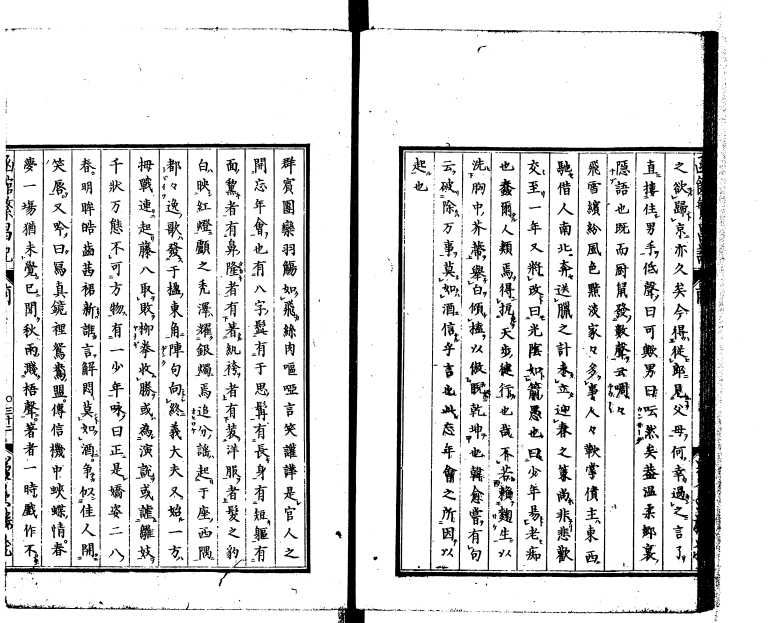 之欲歸京亦久矣今得從郎見父母何幸過之言了
直摟住男手低聲曰可歟男曰唔然矣蓋溫柔鄉裏
隱語也既而厨鼠發數聲云啁々
飛雪繽紛風色黯淡家々多事人々軟掌債主東西
馳借人南北奔送臘之計未立迎春之籌尚非悲歡
交至一年又將改曰光陰如箭愚也曰少年易老痴
也蠢爾人類焉得抗天步健行也哉不若賴麯生以
洗胸中芥蔕擧白傾榼以傲睨乾坤也韓愈嘗有句
云破除万事莫如酒信乎言也此忘年會之所因以
起也
群賓團欒羽觴如飛絲肉嘔啞言笑讙譁是官人之
開忘年會也有八字髭有于思髯有長身有短軀有
面黧者有鼻隆者有著紈袴者有裝洋服者髮之豹
白映紅燈顱之禿澤耀銀燭焉追分謠起于座西隅
都々逸歌發于榼東角陣句向終義大夫又始一方
拇戰連起藤八取敗柳拳收勝或為演說或謔雛妓
千狀万態不可方物有一少年咏曰正是嬌姿二八
春明眸皓齒茜裙新誰言解悶莫如酒爭似佳人開
笑唇又吟曰曷真鏡裡鴛鴦盟傳信機中蛺蝶情春
夢一場猶未覺已聞秋雨濺梧聲著者一時戲作不
函館繁昌記 前 三十二